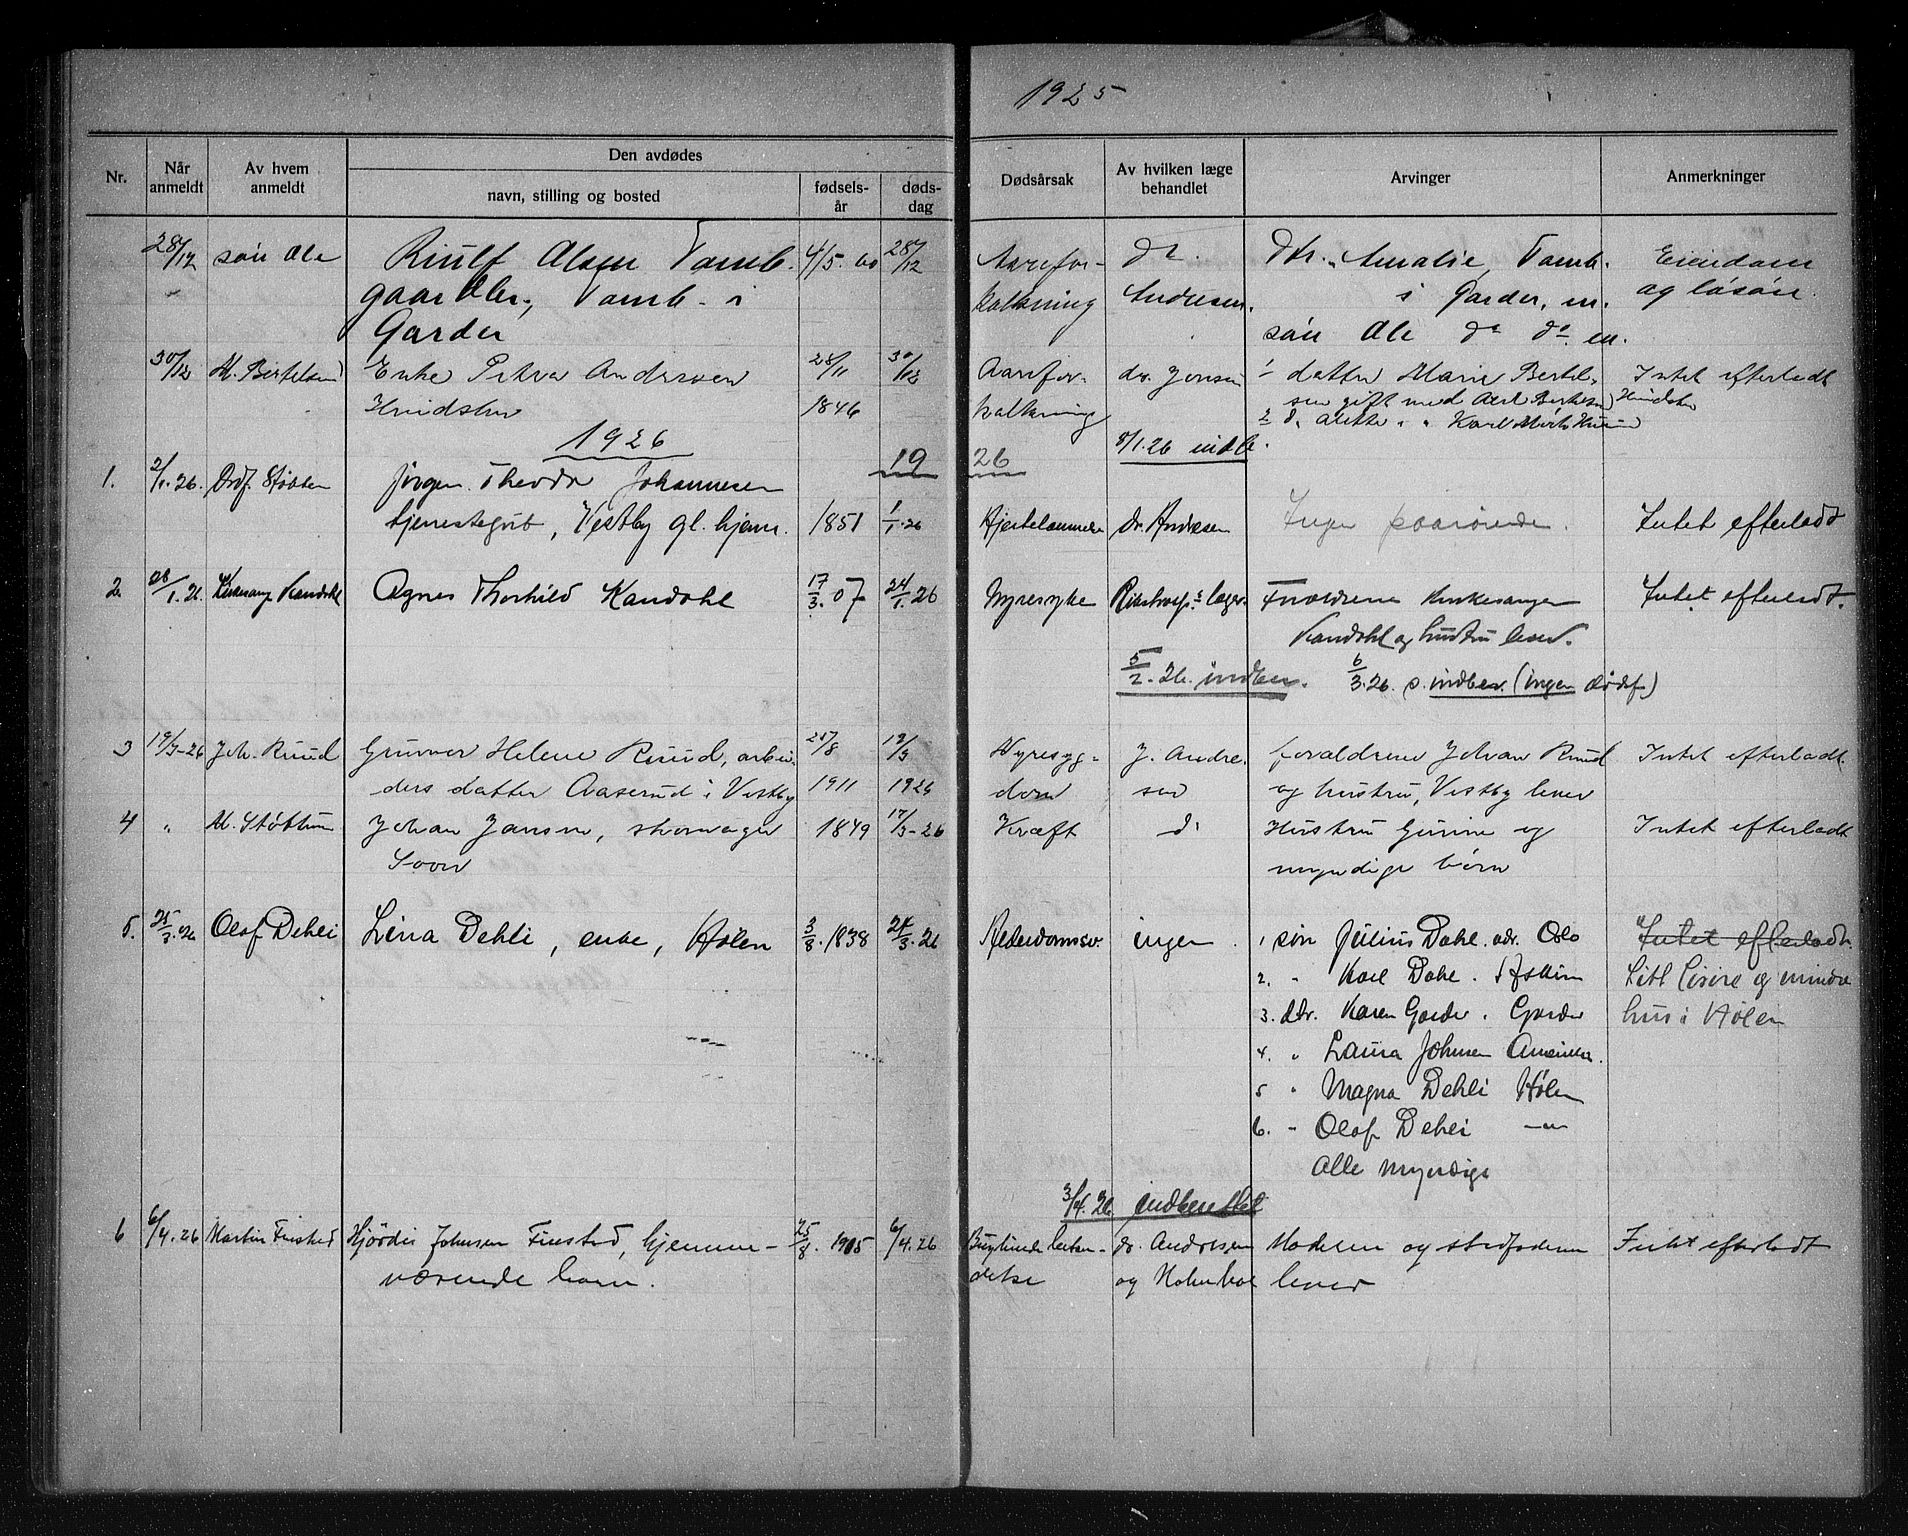 1925
Nr.
Når anmeldt
Av hvem anmeldt
Den avdødes
navn, stilling og bosted
fødsels-år
døds-dag
Dødsårsak
Av hvilken læge behandlet
Arvinger
Anmerkninger
28/12 søn Ole Olsen Tomb. 4/5. 60 28/12 Aarefor- dr. dtr. Amalie Tomb. Eiendom
gaardbr., Tomb i kalkning Andresen. i Garder, m. og løsøre.
Garder søn Ole do do m.
30/12 M. Bertelsen Enke Petra Andersen 28/11 30/12 Aarefor- dr. Jensen 1 datter Marie Bertel- Intet efterladt
1846 kalkning sen gift med
2 d. Karl
1926 8/1.26 indb.
1. 2/1.26. Jørgen Theodor Johannesen 19 26
tjenestegut, Vestby gl. hjem. 1851 1/1.26 Hjertelammelse dr. Andresen Ingen paarørende. Intet efterladt
2. 28/1.26. Kirkesang. Kandahl Agnes Thorhild Kandahl 17/3.07 24/1.26 Nyresyke Rikshosp.s læger Forældrene kirkesanger Intet efterladt.
Kandahl og hustru lever.
5/2.26. indber. 6/3.26. s. indber. (ingen dødsf.)
3 19/3-26 Joh. Ruud Gunvor Helene Ruud, arbei- 25/8 12/3 Nyresyg- J. Andre- forældrene Johan Ruud Intet efterladt
ders datter Aaserud i Vestby 1911 1926 dom sen og hustru, Vestby lever
4 " M. Støttum Johan Jansen, 1849 17/3-26 Kræft d. Hustru Gurine og Intet efterladt
Soon myndige børn
5. 25/3.26 Olaf Dehli Lina Dehli, enke, Hølen 3/3.1838 24/3.26 Alderdomssv. ingen. 1 søn Julius Dahl. adr. Oslo Intet efterladt.
2. " Karl Dahl. Askim Litt løsøre og mindre
3. dtr. Karen Garder. Garder hus i Hølen
4. " Laura Johnsen Amerika.
5 " Magna Dehli Hølen
6. " Olaf Dehli —"—
Alle myndige
3/4.26. indberettet
6 6/4.26 Martin Finstad Hjørdis Johnsen Finstad, hjemme- 25/8.1905 6/4.26 dr. Andresen Moderen og stedfaderen Intet efterladt
værende barn. og lever